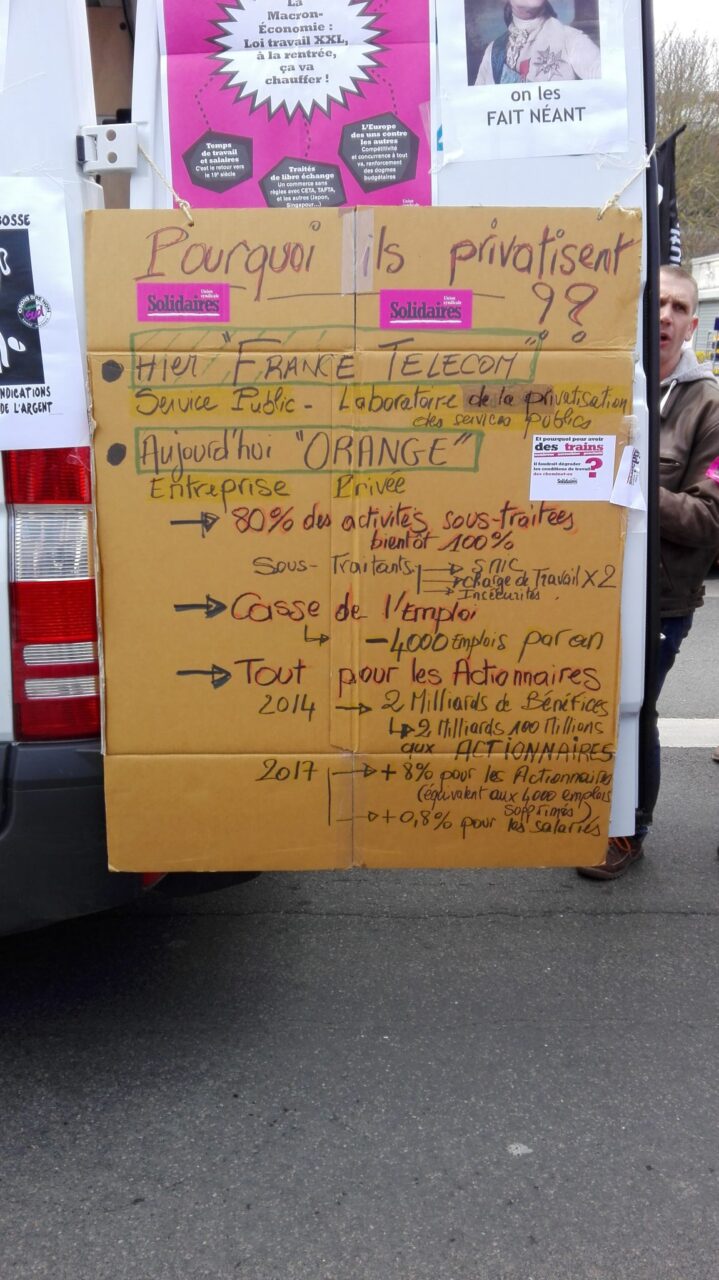 La
Macron-
Économie :
Loi travail XXL,
à la rentrée,
ça va
chauffer !
Temps
de travail
et salaires
C'est le retour vers
le 19e siècle
Traités
de libre échange
Un commerce sans
règles avec CETA, TAFTA,
et les autres (Japon,
Singapour...)
L'Europe
des uns contre
les autres
Compétitivité
et concurrence à tout
va, renforcement
des dogmes
budgétaires
on les
FAIT NÉANT
BOSSE
NDICATIONS
DE L'ARGENT
Pourquoi ils privatisent
??
Union
syndicale
Solidaires
Union
syndicale
Solidaires
• Hier "FRANCE TELECOM"
Service Public - Laboratoire de la privatisation
des services publics
• Aujourd'hui "ORANGE"
Entreprise Privée
Et pourquoi pour avoir
des trains
il faudrait dégrader
les conditions de travail
des cheminot-es
?
Solidaires
→ 80% des activités sous-traitées
bientôt 100%
Sous-Traitants → SMIC
→ charge de Travail X2
→ Insécurités
→ Casse de l'Emploi
↳ -4000 Emplois par an
→ Tout pour les Actionnaires
2014 → 2 Milliards de Bénéfices
↳ 2 Milliards 100 Millions
aux ACTIONNAIRES
2017 → +8% pour les Actionnaires
(équivalent aux 4000 emplois
supprimés)
→ +0,8% pour les salariés